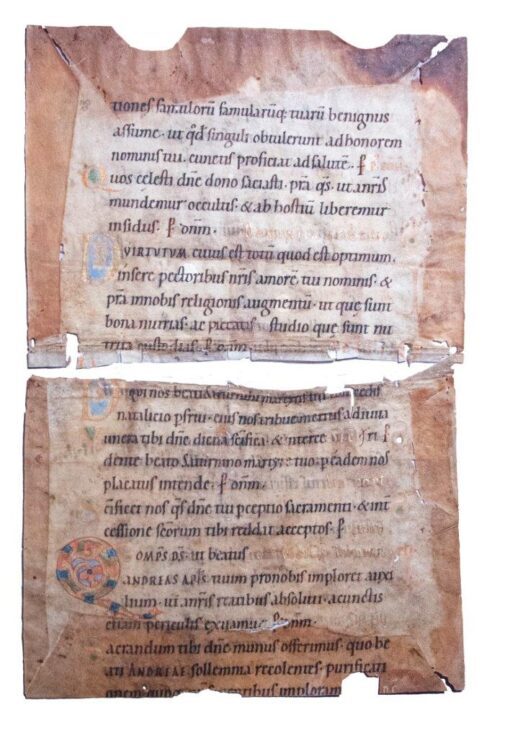 tiones famuloru famularuq; tuaru benignus
assume. ut qd singuli obtulerunt ad honorem
nominis tui. cunctis proficiat ad salutē. P
uos celesti dn̄e dono saciasti. prā qs. ut anr̄is
mundemur occultis. & ab hostiū liberemur
insidiis. P om̄m.
VIRTUTUM. cuius est totū quod est optimum.
insere pectoribus nr̄is amorē tui nominis. &
prā innobis religionis augmentū. ut que sunt
bona nutrias. ac pietatis studio que sunt nu
trita custodias. P om̄m.
qui nos beati
natalicio pfrui. eius nos tribue meritis adiuua
unera tibi dn̄e dicata sc̄ifica. & interce
dente beato Saturnino martyre tuo. p eadem nos
placatus intende. P om̄m.
c̄ificet nos qs dn̄e tui pceptio sacramenti. & int
cessione sc̄orum tibi reddat acceptos. P
OMPS DS. ut beatus
ANDREAS APLS. tuum pro nobis imploret auxi
lium. ut anr̄is reatibus absoluti. a cunctis
etiam periculis exuamur. P om̄m.
acrandum tibi dn̄e munus offerimus. quo be
ati ANDREAE sollemnia recolentes. purificati
onem quoq; imploram